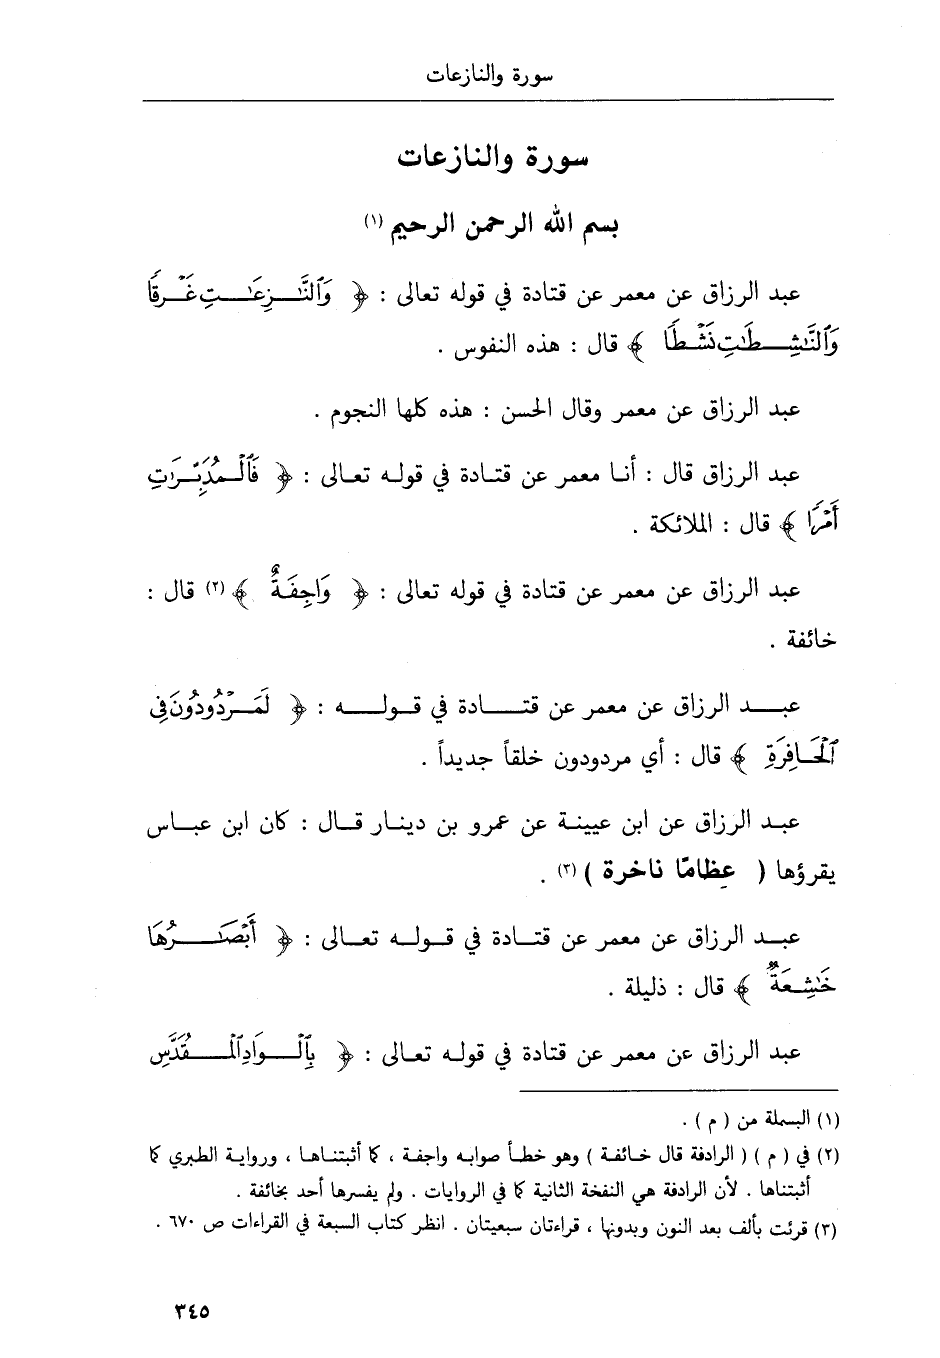 سورة والنازعات
سورة والنازعات
بسم الله الرحمن الرحيم (١)
عبد الرزاق عن معمر عن قتادة في قوله تعالى : ﴿ وَٱلنَّٰزِعَٰتِ غَرْقًا
وَٱلنَّٰشِطَٰتِ نَشْطًا ﴾ قال : هذه النفوس .
عبد الرزاق عن معمر وقال الحسن : هذه كلها النجوم .
عبد الرزاق قال : أنا معمر عن قتادة في قوله تعالى : ﴿ فَٱلْمُدَبِّرَٰتِ
أَمْرًا ﴾ قال : الملائكة .
عبد الرزاق عن معمر عن قتادة في قوله تعالى : ﴿ وَاجِفَةٌ ﴾ (٢) قال :
خائفة .
عبد الرزاق عن معمر عن قتادة في قوله : ﴿ لَمَرْدُودُونَ فِى
ٱلْحَافِرَةِ ﴾ قال : أي مردودون خلقاً جديداً .
عبد الرزاق عن ابن عيينة عن عمرو بن دينار قال : كان ابن عباس
يقرؤها ( عظامًا ناخرة ) (٣) .
عبد الرزاق عن معمر عن قتادة في قوله تعالى : ﴿ أَبْصَٰرُهَا
خَٰشِعَةٌ ﴾ قال : ذليلة .
عبد الرزاق عن معمر عن قتادة في قوله تعالى : ﴿ بِٱلْوَادِ ٱلْمُقَدَّسِ
(١) البسملة من ( م ) .
(٢) في ( م ) ( الرادفة قال خائفة ) وهو خطأ صوابه واجفة ، كما أثبتناها ، ورواية الطبري كما
أثبتناها . لأن الرادفة هي النفخة الثانية كما في الروايات . ولم يفسرها أحد بخائفة .
(٣) قرئت بألف بعد النون وبدونها ، قراءتان سبعيتان . انظر كتاب السبعة في القراءات ص ٦٧٠ .
٣٤٥